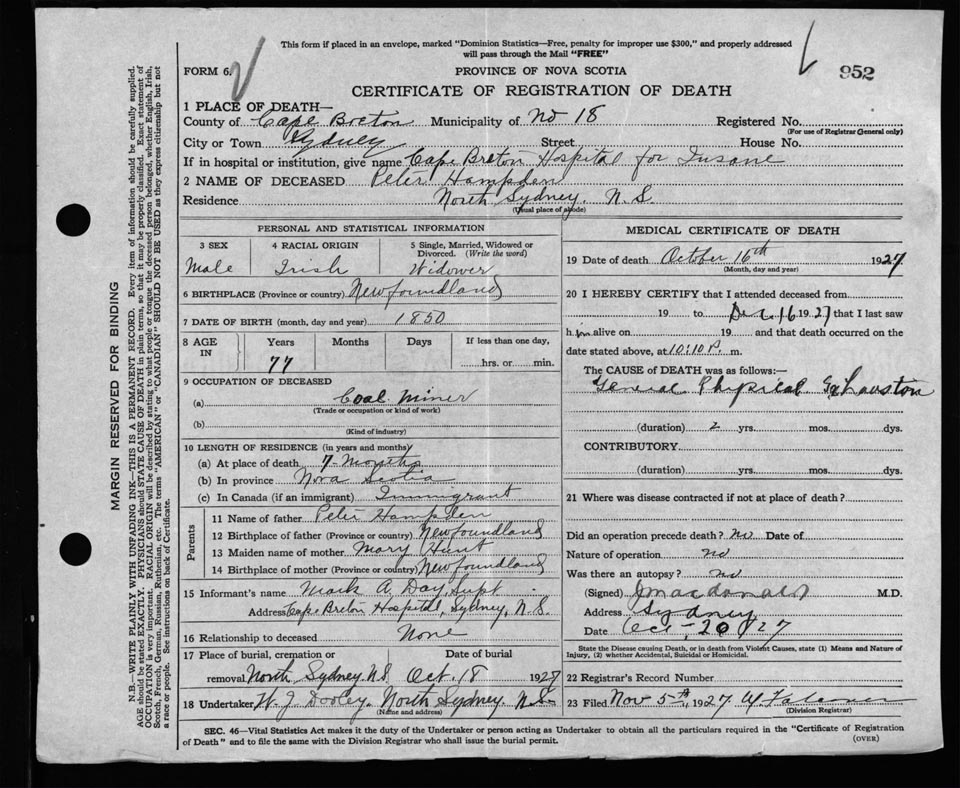 This form if placed in an envelope, marked "Dominion Statistics—Free, penalty for improper use $300," and properly addressed
will pass through the Mail "FREE"
FORM 6.
PROVINCE OF NOVA SCOTIA
952
CERTIFICATE OF REGISTRATION OF DEATH
1 PLACE OF DEATH—
County of Cape Breton Municipality of No 18 Registered No.
(For use of Registrar General only)
City or Town Sydney Street House No.
If in hospital or institution, give name Cape Breton Hospital for Insane
2 NAME OF DECEASED Peter Hampden
Residence North Sydney. N.S.
(Usual place of abode)
PERSONAL AND STATISTICAL INFORMATION
3 SEX 4 RACIAL ORIGIN 5 Single, Married, Widowed or Divorced. (Write the word)
Male Irish Widower
6 BIRTHPLACE (Province or country) Newfoundland
7 DATE OF BIRTH (month, day and year) 1850
8 AGE IN Years Months Days If less than one day,
77 hrs. or min.
9 OCCUPATION OF DECEASED
(a) Coal Miner
(Trade or occupation or kind of work)
(b)
(Kind of industry)
10 LENGTH OF RESIDENCE (in years and months)
(a) At place of death 7 months
(b) In province Nova Scotia
(c) In Canada (if an immigrant) Immigrant
Parents
11 Name of father Peter Hampden
12 Birthplace of father (Province or country) Newfoundland
13 Maiden name of mother Mary Hunt
14 Birthplace of mother (Province or country) Newfoundland
15 Informant's name Mark A. Day, Supt
Address Cape Breton Hospital, Sydney, N.S.
16 Relationship to deceased None
17 Place of burial, cremation or removal Date of burial
North Sydney N.S. Oct. 18 1927
18 Undertaker W. J. Dooley. North Sydney. N.S.
(Name and address)
MEDICAL CERTIFICATE OF DEATH
19 Date of death October 16th 1927
(Month, day and year)
20 I HEREBY CERTIFY that I attended deceased from
19 to Dec. 16 1927 that I last saw
him alive on 19 and that death occurred on the
date stated above, at 10:10 P. m.
The CAUSE OF DEATH was as follows:
General Physical Exhaustion
(duration) 2 yrs. mos. dys.
CONTRIBUTORY.
(duration) yrs. mos. dys.
21 Where was disease contracted if not at place of death?
Did an operation precede death? no Date of
Nature of operation no
Was there an autopsy? no
(Signed) J Macdonald M.D.
Address Sydney
Date Oct - 20 / 27
State the Disease causing Death, or in death from Violent Causes, state (1) Means and Nature of
Injury, (2) whether Accidental, Suicidal or Homicidal.
22 Registrar's Record Number
23 Filed Nov 5th, 1927
(Division Registrar)
SEC. 46—Vital Statistics Act makes it the duty of the Undertaker or person acting as Undertaker to obtain all the particulars required in the "Certificate of Registration
of Death" and to file the same with the Division Registrar who shall issue the burial permit.
(OVER)
MARGIN RESERVED FOR BINDING
N.B.—WRITE PLAINLY WITH UNFADING INK—THIS IS A PERMANENT RECORD. Every item of information should be carefully supplied.
AGE should be stated EXACTLY. PHYSICIANS should STATE CAUSE OF DEATH in plain terms, so that it may be properly classified. Exact statement of
OCCUPATION is very important. RACIAL ORIGIN will be described by stating to what people or tongue the deceased person belonged, whether English, Irish,
Scotch, French, German, Russian, Ruthenian, etc. The terms "AMERICAN" or "CANADIAN" SHOULD NOT BE USED as they express citizenship but not
a race or people. See instructions on back of Certificate.